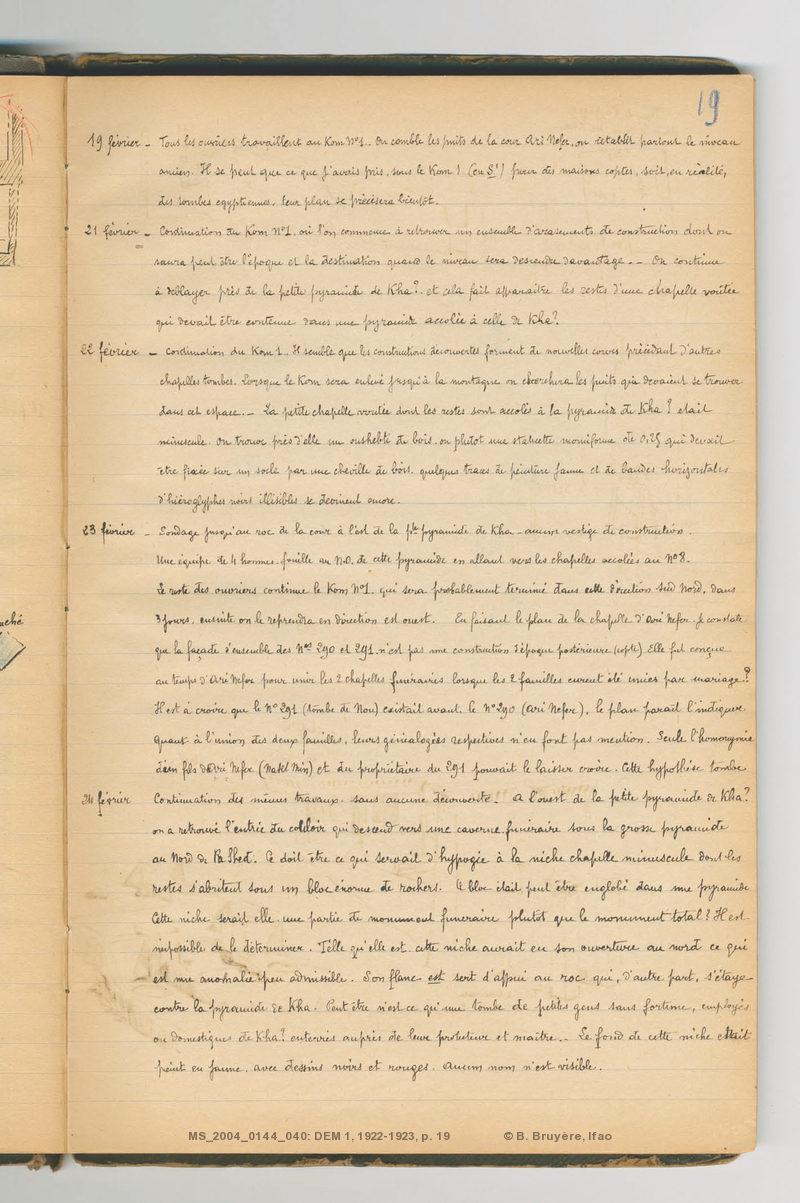 19
19 février - Tous les ouvriers travaillent au Kom N°1. On comble les puits de la cour Ari Nefer, on rétablit partout le niveau
ancien. Il se peut que ce que j'avais pris, sous le Kom 1 (en S¹) pour des maisons coptes, soit, en réalité,
des tombes egyptiennes. leur plan se précisera bientôt.
21 février - Continuation du Kom N°1. où l'on commence à retrouver un ensemble d'arasements de construction dont on
saura peut être l'époque et la destination quand le niveau sera descendu davantage. - On continue
à déblayer près de la petite pyramide de Kha? et cela fait apparaître les restes d'une chapelle voutée
qui devait être contenue dans une pyramide accolée à celle de Kha?.
22 février - Continuation du Kom 1. Il semble que les constructions découvertes forment de nouvelles cours précédant d'autres
chapelles tombes. Lorsque le Kom sera enlevé jusqu'à la montagne on cherchera les puits qui devaient se trouver
dans cet espace. - La petite chapelle voutée dont les restes sont accolés à la pyramide de Kha? était
minuscule. On trouve près d'elle un oushebti de bois. ou plutôt une statuette momiforme de 0,25 qui devait
être fixée sur un socle par une cheville de bois. quelques traces de peinture jaune et de bandes horizontales
d'hiéroglyphes noirs illisibles se devinent encore.
23 février - Sondage jusqu'au roc de la cour à l'est de la pte pyramide de Kha - aucun vestige de construction.
Une équipe de 4 hommes fouille au N.O. de cette pyramide en allant vers les chapelles accolées au N°8.
Le reste des ouvriers continue le Kom N°1. qui sera probablement terminé dans cette direction sud Nord, dans
3 jours. ensuite on le reprendra en direction est ouest. En faisant le plan de la chapelle d'Ari Nefer. je constate
que la façade d'ensemble des Nos 290 et 291. n'est pas une construction d'époque postérieure (copte) Elle fut conçue
au temps d'Ari Nefer pour unir les 2 chapelles funéraires lorsque les 2 familles eurent été unies par mariage?
Il est à croire que le N° 291 (tombe de Nou) existait avant le N° 290 (Ari Nefer), le plan parait l'indiquer.
Quant à l'union des deux familles, leurs généalogies respectives n'en font pas mention. Seule l'homonymie
d'un fils d'Ari Nefer (Nakht Min) et du propriétaire du 291 pouvait le laisser croire. Cette hypothèse tombe.
24 février Continuation des mêmes travaux. sans aucune découverte. A l'ouest de la petite pyramide de Kha?
on a retrouvé l'entrée du couloir qui descend vers une caverne funéraire sous la grosse pyramide
au Nord de Pa Shed. Ce doit être ce qui servait d'hypogée à la niche chapelle minuscule dont les
restes s'abritent sous un bloc énorme de rochers. Ce bloc était peut être englobé dans une pyramide
Cette niche serait elle une partie de monument funéraire plutôt que le monument total? Il est
impossible de le déterminer. Telle qu'elle est cette niche aurait eu son ouverture au nord ce qui
est une anomalie peu admissible. Son flanc est sert d'appui au roc qui, d'autre part, s'étaye
contre la pyramide de Kha. Peut être n'est ce qu'une tombe de petites gens sans fortune, employés
ou domestiques de Kha? enterrés auprès de leur protecteur et maître. - Le fond de cette niche était
peint en jaune. avec dessins noirs et rouges. Aucun nom n'est visible.
uché
MS_2004_0144_040: DEM 1, 1922-1923, p. 19 © B. Bruyère, Ifao